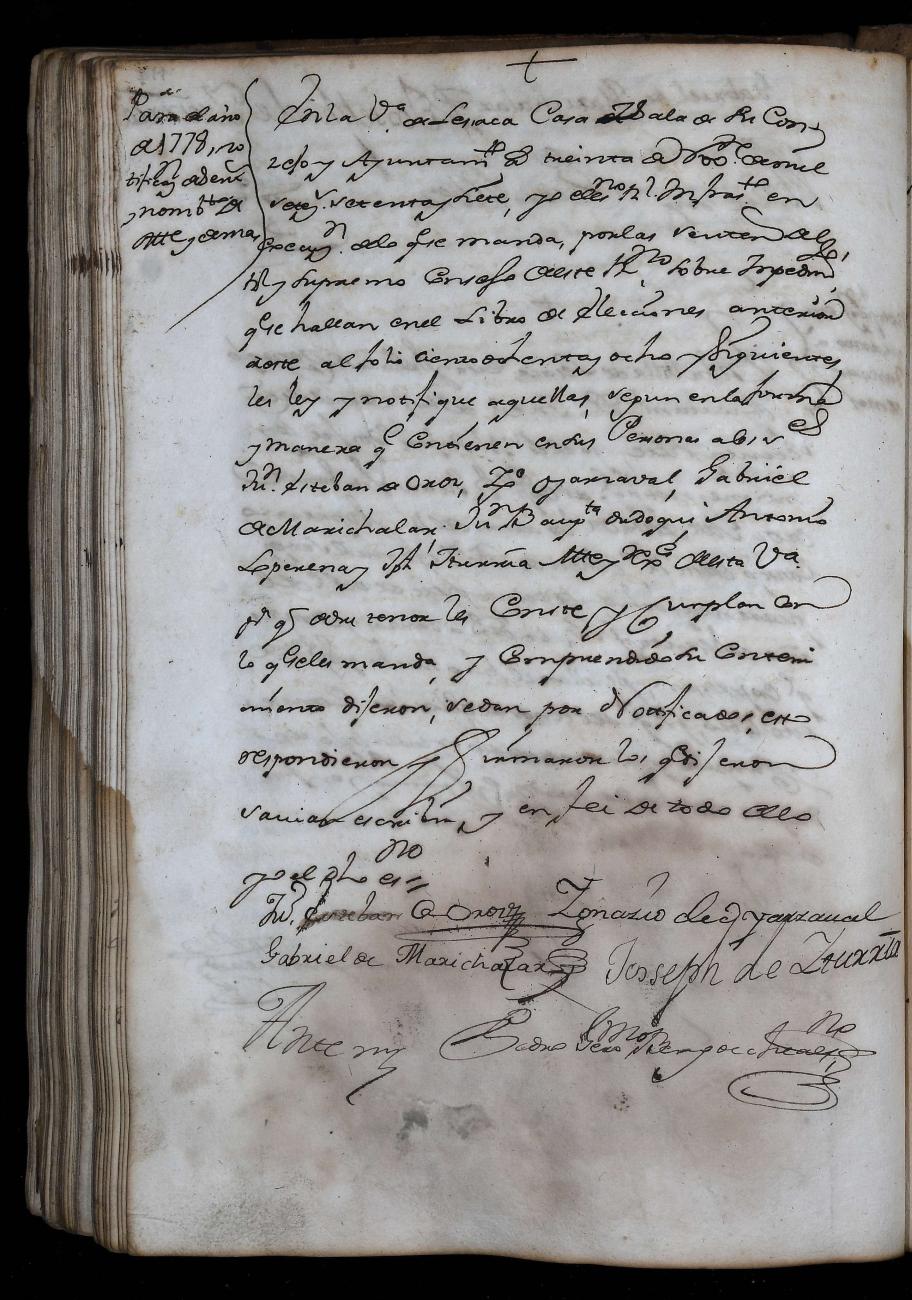 Para el año
de 1778, no
tificon de sent
y nombto de
Altte y demas
En la Va de Lesaca Casa Sala de su Con
zejo y Ayuntamto a treinta de Nobre de mil
setezs setenta y siete, yo el esno Rl Infrasto en
execuon de lo que se manda, por las senten del
Rl y Supremo Consejo de este Rno sobre Impedim
que se hallan en el Libro de Elecciones anterior
a este al folio ciento ochenta y ocho y siguientes
les ley y notifique aquellas, segun en la forma
y manera q Contienen en sus Personas a los ses
Jun Esteban de Oroz, Igo Oyarzaval, Gabriel
de Marichalar, Jun Bapta Endoqui Antonio
Leperena y Jph Iturria Altte y Regs de esta Va
pa q de su tenor les Conste y Cumplan con
lo q se les manda, y Comprendido su Conteni
miento dijeron, se dan por Notificados, esto
respondieron y firmaron los q dijeron
savian escribir, y en fei de todo ello
yo el dho esno
Jun Esteban de Oroz Ignazio de Oyarzaval
Gabriel de Marichalar Josseph de Iturria
Ante mi Pedro